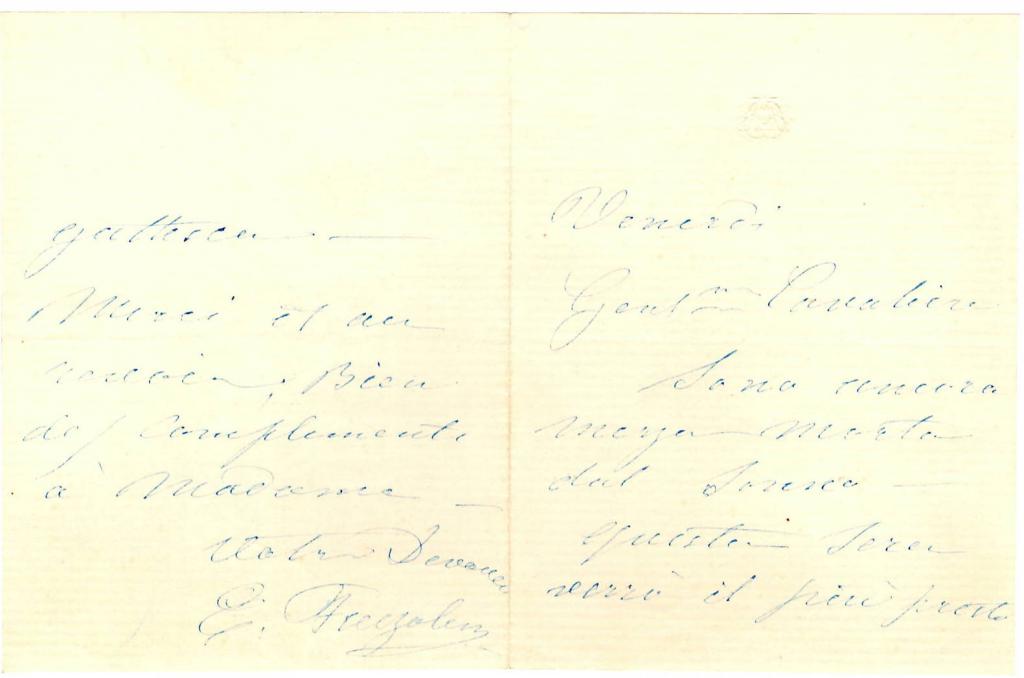 Venerdi
Gent^mo Cavaliere
Sono ancora
mezza morta
dal sonno —
questa sera
verrò il più presto
Merci et au
revoir, Bien
des compliments
à Madame —
Votre Devouée
E. Frezzolini